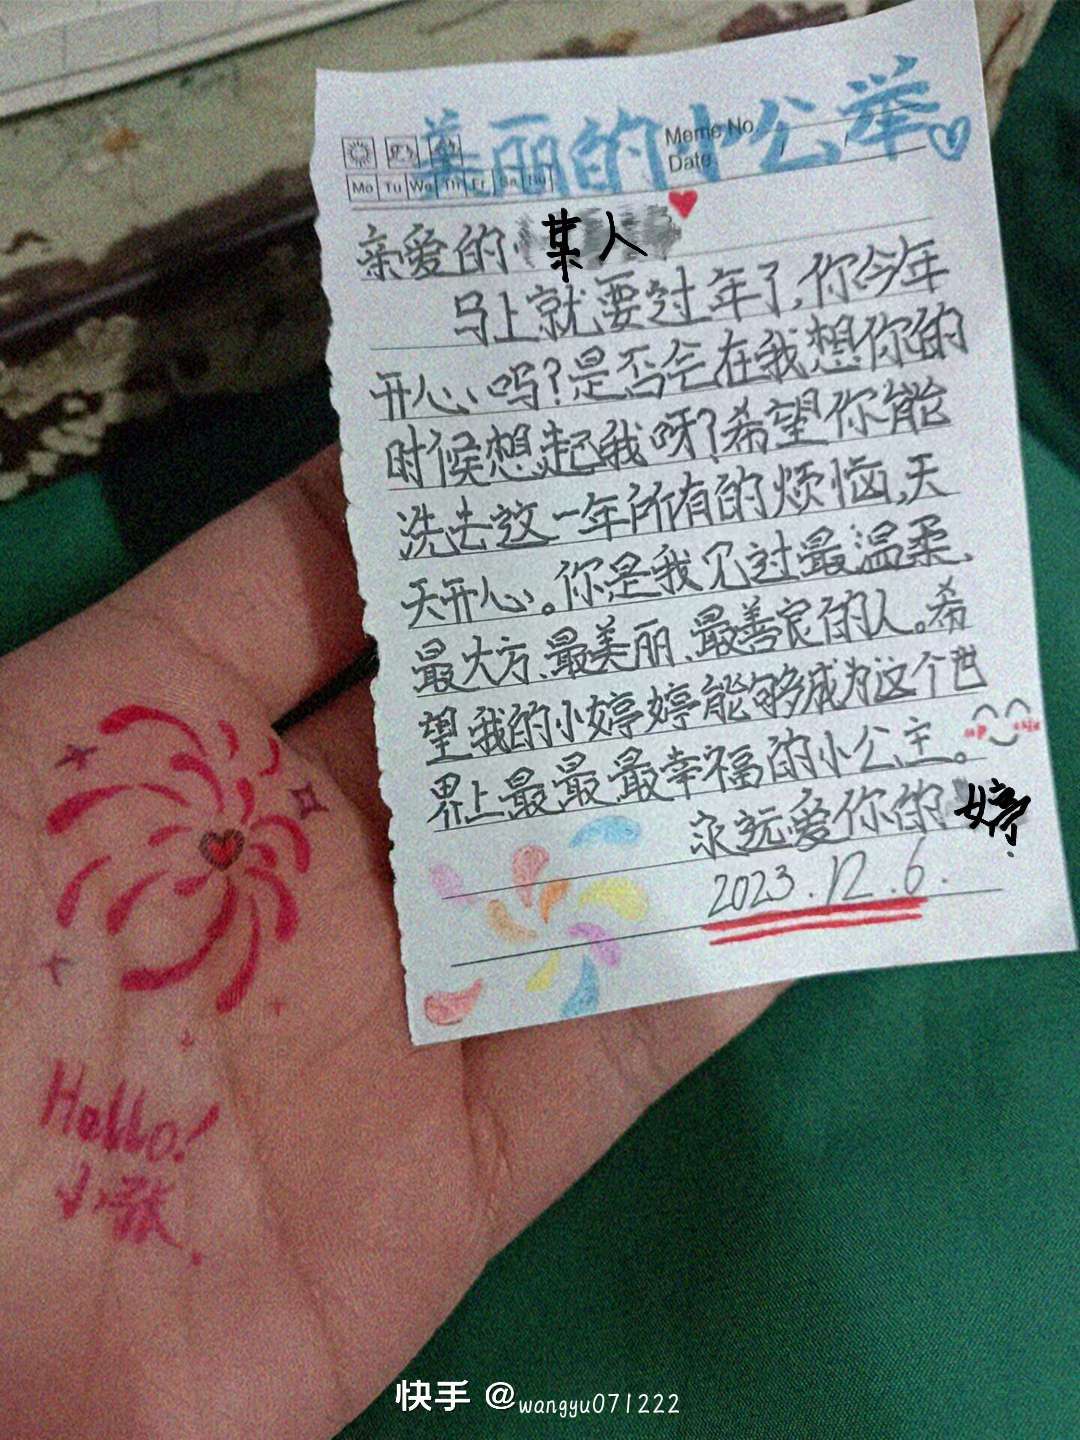 美丽的小公举
Memo No
Date / /
Mo Tu We Th Fr Sa Su
亲爱的某人
马上就要过年了,你今年
开心吗?是否会在我想你的
时候想起我呀?希望你能
洗去这一年所有的烦恼,天
天开心。你是我见过最温柔、
最大方、最美丽、最善良的人。希
望我的小婷婷能够成为这个世
界上最最最幸福的小公主。
永远爱你的婷.
2023.12.6.
Hello!
小张.
快手 @wangyu071222